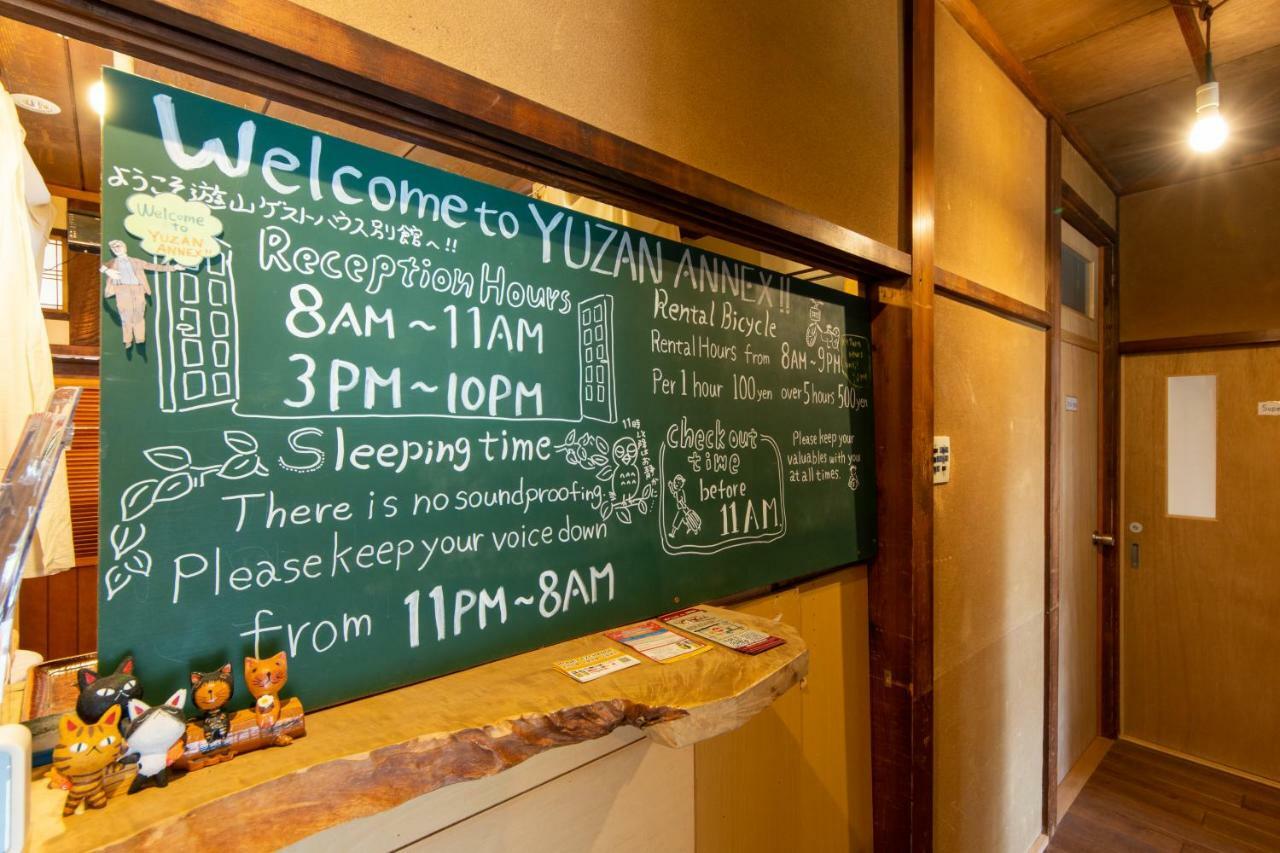 Welcome to YUZAN ANNEX!!
ようこそ遊山ゲストハウス別館へ!!
Welcome
to
YUZAN
ANNEX!!
Reception Hours
8AM~11AM
3PM~10PM
Sleeping time
11時以降はお静かに
There is no soundproofing.
Please keep your voice down
from 11PM~8AM
Rental Bicycle
Rental Hours from 8AM~9PM
Per 1 hour 100yen over 5 hours 500yen
check out
time
before
11AM
Please keep your
valuables with you
at all times.